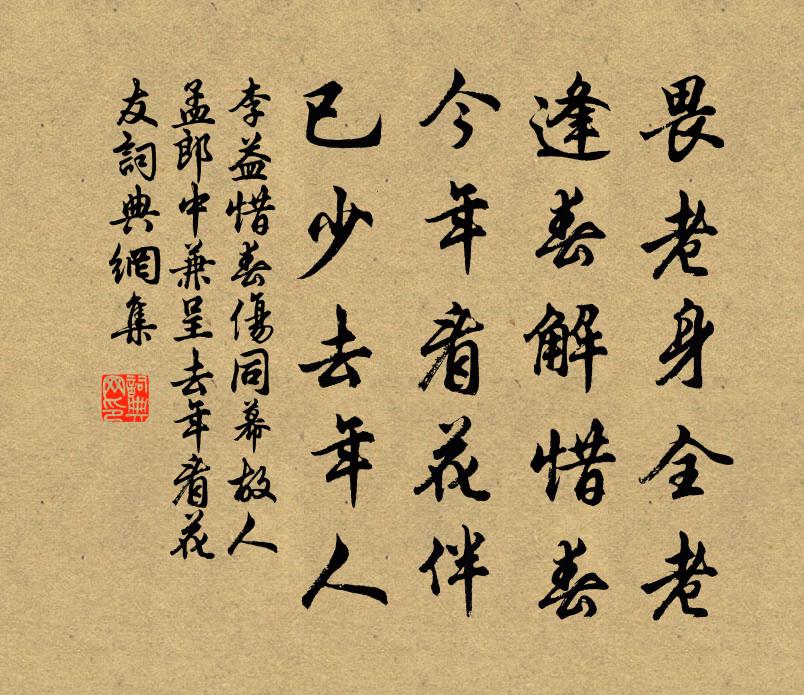 畏老身全老
逢春解惜春
今年看花伴
已少去年人
李益惜春傷同幕故人
孟郎中兼呈去年看花
友詞典網集
詞典網印